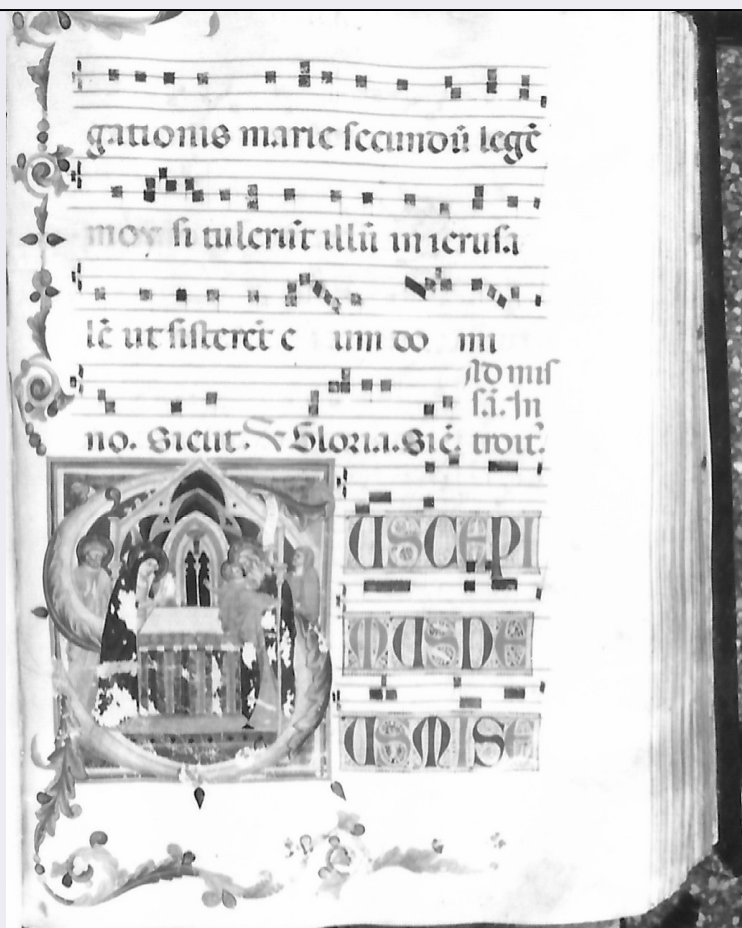 gationis marie secundū legē
moy si tulerūt illū in ierusa
lē ut sisterēt e um do mi
Ad mis
sā. In
no. Sicut. Gloria. Sic̄. troit᷑.
USCEPI
MUSDE
USMISE